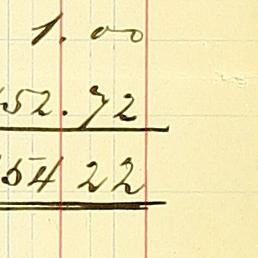 1.00
52.72
54 22